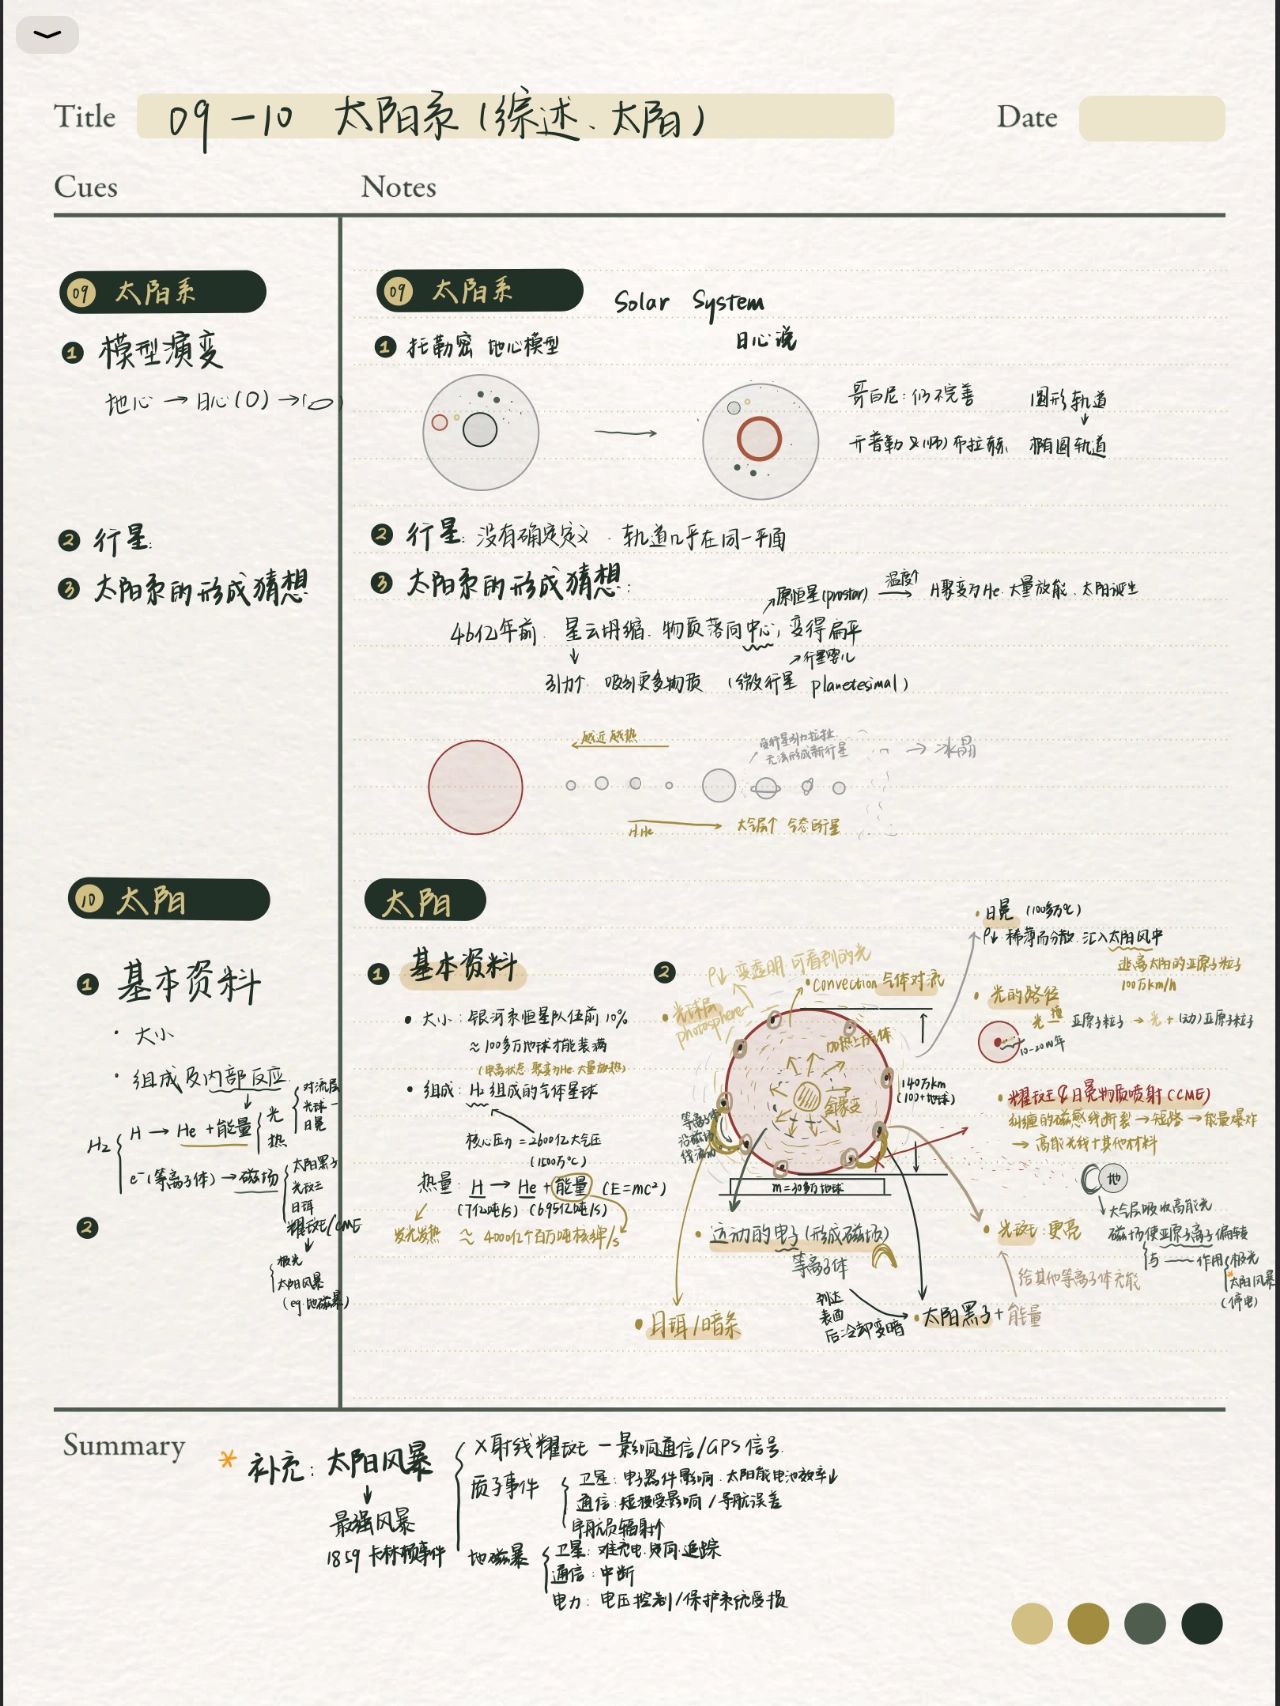 Title 09-10 太阳系(综述、太阳)
Date
Cues
Notes
09 太阳系
1 模型演变
地心 → 日心(O) →
2 行星:
3 太阳系的形成猜想
09 太阳系 Solar System
1 托勒密 地心模型
日心说
哥白尼:仍不完善 圆形轨道
开普勒 &(师) 椭圆轨道
2 行星: 没有确定定义 · 轨道几乎在同一平面
3 太阳系的形成猜想:
原恒星(prostar) 温度个 H聚变为He 大量放能、太阳诞生
46亿年前. 星云坍缩. 物质落向中心, 变得扁平
→行星婴儿
引力↑ 吸引更多物质 (微行星 planetesimal)
越近越热
受行星引力拉扯
无法形成新行星
→ 冰晶
H He
大气层↑ 气态巨行星
10 太阳
1 基本资料
· 大小
· 组成及内部反应
H₂
H → He + 能量
光
热
对流层
光球
日冕
e⁻(等离子体) → 磁场
太阳黑子
光斑
日珥
耀斑/CME
极光
太阳风暴
(eg.地磁暴)
2
太阳
1 基本资料
• 大小: 银河系恒星队伍前10%
≈ 100多万地球才能装满
• 组成: H₂ 组成的气体星球
核心压力 = 2600亿大气压
(1500万°C)
热量: H → He + 能量 (E=mc²)
(7亿吨/s) (6.95亿吨/s)
发光发热 ≈ 4000亿个百万吨核弹/s
2
ρ↓ 变透明 可看到的光
• 光球层
photosphere
• Convection 气体对流
加热上层气体
核聚变
140万km
(100+地球)
m=30多万地球
等离子体
沿磁场
线流动
• 运动的电子(形成磁场)
等离子体
• 日珥/暗条
到达
表面
后冷却变暗
• 太阳黑子 + 能量
• 光斑:更亮
给其他等离子体充能
• 日冕 (100多万℃)
ρ↓ 稀薄而分散. 汇入太阳风中
逃离太阳的亚原子粒子
100万km/h
• 光的路径
光 撞 亚原子粒子 → 光 + (动)亚原子粒子
• 耀斑&日冕物质喷射(CME)
纠缠的磁感线断裂 → 短路 → 能量爆炸
→ 高能光线+其他材料
地
大气层吸收高能光
磁场使亚原子离子偏转
与 作用
极光
太阳风暴
(停电)
Summary
* 补充: 太阳风暴
最强风暴
1859 卡林顿事件
X射线耀斑 — 影响通信/GPS信号.
质子事件
卫星: 电子器件影响. 太阳能电池效率↓
通信: 短波受影响 / 导航误差
宇航员辐射个
地磁暴
卫星: 难充电. 定向. 追踪
通信: 中断
电力: 电压控制/保护系统受损